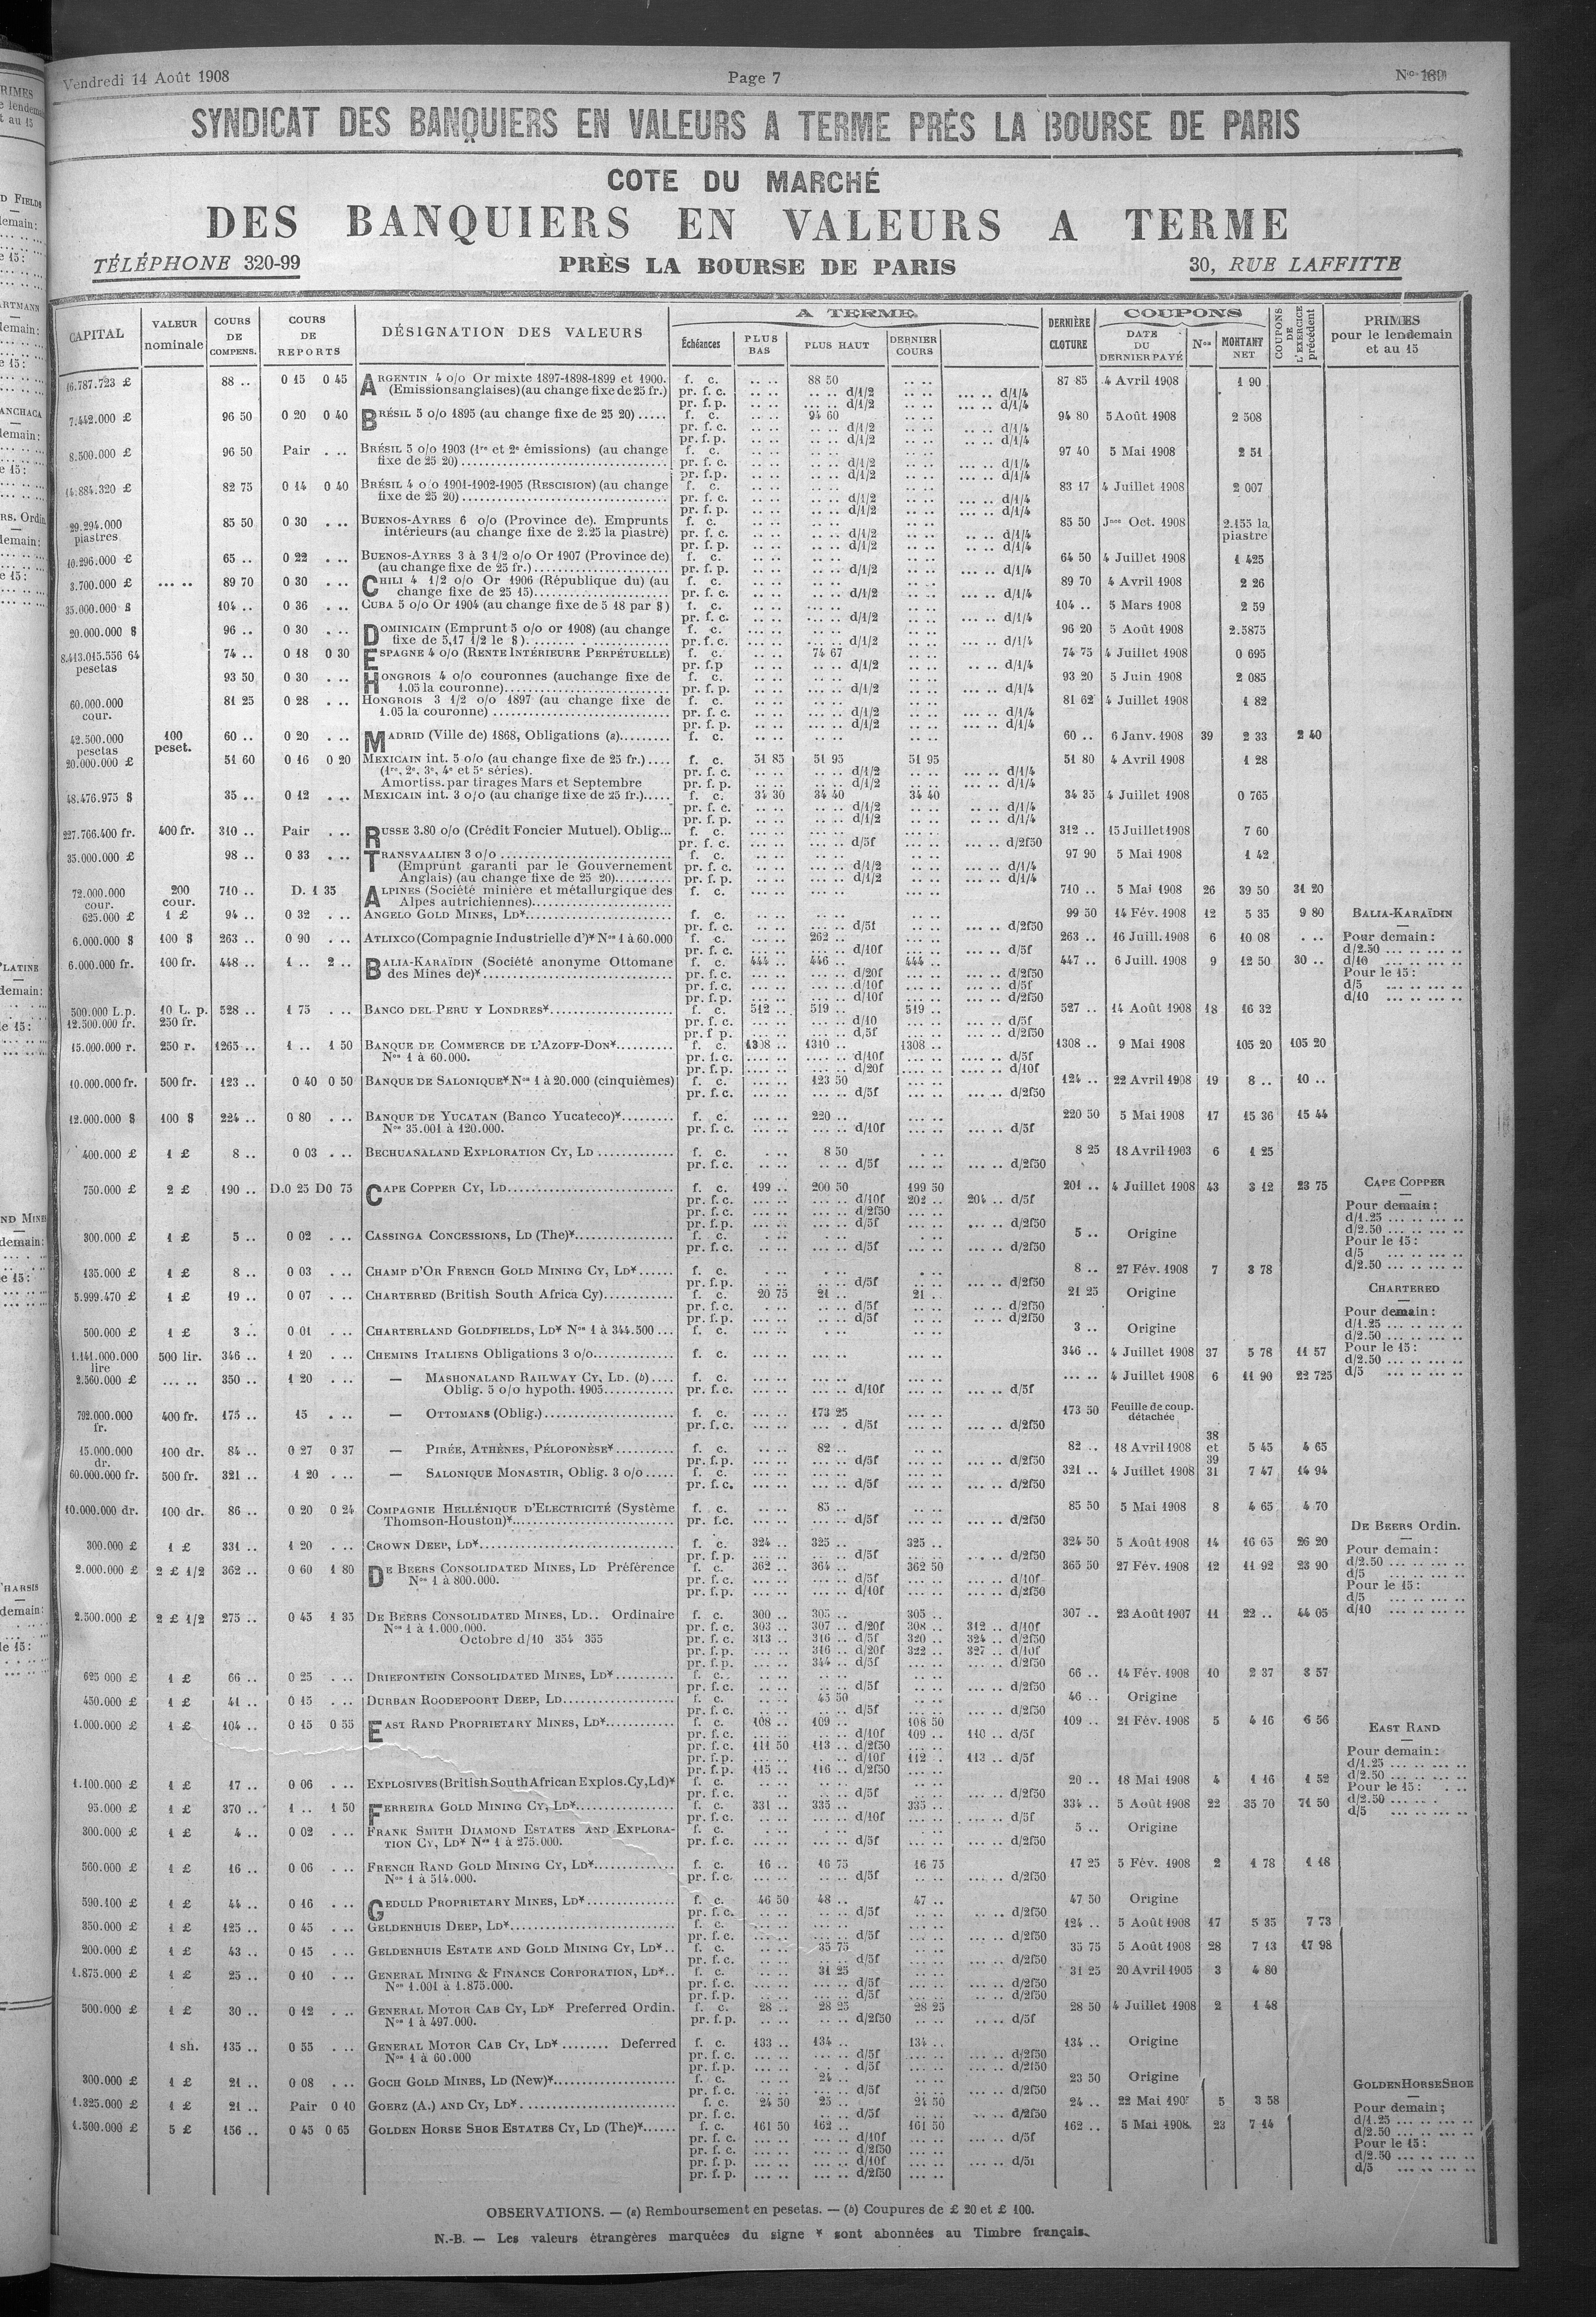 Vendredi 14 Août 1908 Page 7
SYNDICAT DES BANQUIERS EN VALEURS A TERME PRÈS LA BOURSE DE PARIS
COTE DU MARCHÉ
DES BANQUIERS EN VALEURS A TERME
TÉLÉPHONE 320-99 PRÈS LA BOURSE DE PARIS 30, RUE LAFFITTE
CAPITAL VALEUR nominale COURS DE COMPENS. COURS DE REPORTS DÉSIGNATION DES VALEURS A TERME Échéances PLUS BAS PLUS HAUT DERNIER COURS DERNIÈRE CLOTURE COUPONS DATE DU DERNIER PAYÉ Nos MONTANT NET COUPONS DE L'EXERCICE précédent PRIMES pour le lendemain et au 15
16.787.723 £ 88 .. 0 15 0 45 ARGENTIN 4 o/o Or mixte 1897-1898-1899 et 1900. f. c. .. .. 88 50 .. .. 87 85 4 Avril 1908 1 90
(Emissions anglaises) (au change fixe de 25 fr.) pr. f. c. .. .. .. .. d/1/2 .. .. ... .. d/1/4
pr. f. p. .. .. ... .. d/1/2 .. .. ... .. d/1/4
7.442.000 £ 96 50 0 20 0 40 BRÉSIL 5 o/o 1895 (au change fixe de 25 20) ..... f. c. .. .. 94 60 .. .. 94 80 5 Août 1908 2 508
pr. f. c. .. .. .. .. d/1/2 .. .. .. .. d/1/4
pr. f. p. .. .. .. .. d/1/2 .. .. .. .. d/1/4
8.500.000 £ 96 50 Pair . .. BRÉSIL 5 o/o 1903 (1re et 2e émissions) (au change f. c. .. .. .. .. .. .. 97 40 5 Mai 1908 2 51
fixe de 25 20) pr. f. c. .. .. .. .. d/1/2 .. .. ... .. d/1/4
pr. f.p. .. .. .. .. d/1/2 .. .. ... .. d/1/4
14.884.320 £ 82 75 0 14 0 40 BRÉSIL 4 o/o 1901-1902-1905 (RESCISION) (au change f. c. .. .. .. .. .. .. 83 17 4 Juillet 1908 2 007
fixe de 25 20) pr. f. c. .. .. .. .. d/1/2 .. .. ... .. d/1/4
pr. f. p. .. .. .. .. d/1/2 .. .. ... .. d/1/4
29.294.000 piastres 85 50 0 30 . .. BUENOS-AYRES 6 o/o (Province de). Emprunts f. c. .. .. .. .. .. .. 85 50 Jnce Oct. 1908 2.155 la piastre
intérieurs (au change fixe de 2.25 la piastre) pr. f. c. .. .. .. .. d/1/2 .. .. ... .. d/1/4
pr. f. p. .. .. .. .. d/1/2 .. .. ... .. d/1/4
10.296.000 £ 65 .. 0 22 . .. BUENOS-AYRES 3 à 3 1/2 o/o Or 1907 (Province de) f. c. .. .. .. .. .. .. 64 50 4 Juillet 1908 1 425
(au change fixe de 25 fr.) pr. f. p. .. .. .. .. d/1/2 .. .. ... .. d/1/4
3.700.000 £ ... .. 89 70 0 30 . .. CHILI 4 1/2 o/o Or 1906 (République du) (au f. c. .. .. .. .. .. .. 89 70 4 Avril 1908 2 26
change fixe de 25 15) pr. f. c. .. .. .. .. d/1/2 .. .. ... .. d/1/4
35.000.000 $ 104 .. 0 36 . .. CUBA 5 o/o Or 1904 (au change fixe de 5 18 par $) f. c. .. .. .. .. .. .. 104 .. 5 Mars 1908 2 59
pr. f. c. .. .. .. .. d/1/2 .. .. ... .. d/1/4
20.000.000 $ 96 .. 0 30 . .. DOMINICAIN (Emprunt 5 o/o or 1908) (au change f. c. .. .. .. .. .. .. 96 20 5 Août 1908 2.5875
fixe de 5,17 1/2 le $) pr. f. c. .. .. .. .. d/1/2 .. .. ... .. d/1/4
8.413.015.556 64 pesetas 74 .. 0 18 0 30 ESPAGNE 4 o/o (RENTE INTÉRIEURE PERPÉTUELLE) f. c. .. .. 74 67 .. .. 74 75 4 Juillet 1908 0 695
pr. f.p .. .. .. .. d/1/2 .. .. .. .. d/1/4
93 50 0 30 . .. HONGROIS 4 o/o couronnes (au change fixe de f. c. .. .. .. .. .. .. 93 20 5 Juin 1908 2 085
1.05 la couronne) pr. f. p. .. .. .. .. d/1/2 .. .. ... .. d/1/4
60.000.000 cour. 81 25 0 28 . .. HONGROIS 3 1/2 o/o 1897 (au change fixe de f. c. .. .. .. .. .. .. 81 62 4 Juillet 1908 1 82
1.05 la couronne) pr. f. c. .. .. .. .. d/1/2 .. .. ... .. d/1/4
pr. f. p. .. .. .. .. d/1/2 .. .. ... .. d/1/4
42.500.000 pesetas 100 peset. 60 .. 0 20 . .. MADRID (Ville de) 1868, Obligations (a) f. c. .. .. .. .. .. .. 60 .. 6 Janv. 1908 39 2 33 2 40
20.000.000 £ 51 60 0 16 0 20 MEXICAIN int. 5 o/o (au change fixe de 25 fr.) f. c. 51 85 51 95 51 95 51 80 4 Avril 1908 1 28
(1re, 2e, 3e, 4e et 5e séries). pr. f. c. .. .. .. .. d/1/2 .. .. ... .. d/1/4
Amortiss. par tirages Mars et Septembre pr. f. p. .. .. .. .. d/1/2 .. .. ... .. d/1/4
48.476.975 $ 35 .. 0 12 . .. MEXICAIN int. 3 o/o (au change fixe de 25 fr.) f. c. 34 30 34 40 34 40 34 35 4 Juillet 1908 0 765
pr. f. c. .. .. .. .. d/1/2 .. .. ... .. d/1/4
pr. f. p. .. .. .. .. d/1/2 .. .. ... .. d/1/4
227.766.400 fr. 400 fr. 310 .. Pair . .. RUSSE 3.80 o/o (Crédit Foncier Mutuel). Oblig... f. c. ... .. ... .. ... .. 312 .. 15 Juillet 1908 7 60
pr. f. c. ... .. ... .. d/5f ... .. ... .. d/2f50
35.000.000 £ 98 .. 0 33 . .. TRANSVAALIEN 3 o/o f. c. .. .. .. .. .. .. 97 90 5 Mai 1908 1 42
(Emprunt garanti par le Gouvernement pr. f. c. .. .. .. .. d/1/2 .. .. ... .. d/1/4
Anglais) (au change fixe de 25 20) pr. f. p. .. .. .. .. d/1/2 .. .. ... .. d/1/4
72.000.000 cour. 200 cour. 710 .. D. 1 35 ALPINES (Société minière et métallurgique des f. c. ... .. ... .. ... .. 710 .. 5 Mai 1908 26 39 50 31 20
Alpes autrichiennes)
625.000 £ 1 £ 94 .. 0 32 . .. ANGELO GOLD MINES, LD* f. c. .. .. .. .. .. .. 99 50 14 Fév. 1908 12 5 35 9 80
pr. f. c. .. .. .. .. d/5f .. .. ... .. d/2f50
6.000.000 $ 100 $ 263 .. 0 90 . .. ATLIXCO (Compagnie Industrielle d')* Nos 1 à 60.000 f. c. ... .. 262 .. ... .. 263 .. 16 Juill. 1908 6 10 08 . ..
pr. f. c. ... .. ... .. d/10f ... .. ... .. d/5f
6.000.000 fr. 100 fr. 448 .. 1 .. 2 .. BALIA-KARAÏDIN (Société anonyme Ottomane f. c. 444 .. 446 .. 444 .. 447 .. 6 Juill. 1908 9 12 50 30 ..
des Mines de)* pr. f. c. ... .. ... .. d/20f ... .. ... .. d/2f50
pr. f. c. ... .. ... .. d/10f ... .. ... .. d/5f
pr. f. p. ... .. ... .. d/10f ... .. ... .. d/2f50
500.000 L.p. 10 L. p. 528 .. 1 75 . .. BANCO DEL PERU Y LONDRES* f. c. 512 .. 519 .. 519 .. 527 .. 14 Août 1908 18 16 32
12.500.000 fr. 250 fr. pr. f. c. ... .. ... .. d/10 ... .. ... .. d/5f
pr. f p. ... .. ... .. d,5f ... .. ... .. d/2f50
15.000.000 r. 250 r. 1265 .. 1 .. 1 50 BANQUE DE COMMERCE DE L'AZOFF-DON* f. c. 1308 .. 1310 .. 1308 .. 1308 .. 9 Mai 1908 105 20 105 20
Nos 1 à 60.000. pr. f. c. .... .. .... .. d/10f .... .. .... .. d/5f
pr. f. p. .... .. .... .. d/20f .... .. .... .. d/10f
10.000.000 fr. 500 fr. 123 .. 0 40 0 50 BANQUE DE SALONIQUE* Nos 1 à 20.000 (cinquièmes) f. c. ... .. 123 50 ... .. 124 .. 22 Avril 1908 19 8 .. 10 ..
pr. f. c. ... .. ... .. d/5f ... .. ... .. d/2f50
12.000.000 $ 100 $ 224 .. 0 80 . .. BANQUE DE YUCATAN (Banco Yucateco)* f. c. ... .. 220 .. ... .. 220 50 5 Mai 1908 17 15 36 15 44
Nos 35.001 à 120.000. pr. f. c. ... .. ... .. d/10f ... .. ... .. d/5f
400.000 £ 1 £ 8 .. 0 03 . .. BECHUANALAND EXPLORATION CY, LD f. c. . .. 8 50 . .. 8 25 18 Avril 1903 6 1 25
pr. f. c. .. .. .. .. d/5f .. .. .. .. d/2f50
750.000 £ 2 £ 190 .. D.0 25 D0 75 CAPE COPPER CY, LD f. c. 199 .. 200 50 199 50 201 .. 4 Juillet 1908 43 3 12 23 75
pr. f. c. ... .. ... .. d/10f 202 .. 204 .. d/5f
pr. f. c. ... .. ... .. d/2f50 ... ..
pr. f. p. ... .. ... .. d/5f ... .. ... .. d/2f50
300.000 £ 1 £ 5 .. 0 02 . .. CASSINGA CONCESSIONS, LD (The)* f. c. . .. . .. . .. 5 .. Origine
pr. f. c. .. .. .. .. d/5f .. .. ... .. d/2f50
135.000 £ 1 £ 8 .. 0 03 . .. CHAMP D'OR FRENCH GOLD MINING CY, LD* f. c. . .. . .. . .. 8 .. 27 Fév. 1908 7 3 78
pr. f. p. .. .. .. .. d/5f .. .. ... .. d/2f50
5.999.470 £ 1 £ 19 .. 0 07 . .. CHARTERED (British South Africa Cy) f. c. 20 75 21 .. 21 .. 21 25 Origine
pr. f. c. .. .. .. .. d/5f .. .. .. .. d/2f50
pr. f. p. .. .. .. .. d/5f .. .. .. .. d/2f50
500.000 £ 1 £ 3 .. 0 01 . .. CHARTERLAND GOLDFIELDS, LD* Nos 1 à 344.500 ... f. c. .. .. .. .. .. .. 3 .. Origine
1.141.000.000 lire 500 lir. 346 .. 1 20 . .. CHEMINS ITALIENS Obligations 3 o/o f. c. ... .. ... .. ... .. 346 .. 4 Juillet 1908 37 5 78 11 57
2.560.000 £ ... .. 350 .. 1 20 . .. — MASHONALAND RAILWAY CY, LD. (b) f. c. ... .. ... .. ... .. ... .. 4 Juillet 1908 6 11 90 22 725
Oblig. 5 o/o hypoth. 1905 pr. f. c. ... .. ... .. d/10f ... .. ... .. d/5f
792.000.000 fr. 400 fr. 175 .. 15 . .. — OTTOMANS (Oblig.) f. c. ... .. 173 25 ... .. 173 50 Feuille de coup. détachée
pr. f. c. ... .. ... .. d/5f ... .. ... .. d/2f50
15.000.000 dr. 100 dr. 84 .. 0 27 0 37 — PIRÉE, ATHÈNES, PÉLOPONÈSE* f. c. .. .. 82 .. .. .. 82 .. 18 Avril 1908 38 et 39 5 45 4 65
pr. f. p. ... .. ... .. d/5f ... .. ... .. d/2f50
60.000.000 fr. 500 fr. 321 .. 1 20 . .. — SALONIQUE MONASTIR, Oblig. 3 o/o f. c. ... .. ... .. ... .. 321 .. 4 Juillet 1908 31 7 47 14 94
pr. f. c. ... .. ... .. d/5f ... .. ... .. d/2f50
10.000.000 dr. 100 dr. 86 .. 0 20 0 24 COMPAGNIE HELLÉNIQUE D'ELECTRICITÉ (Système f. c. .. .. 85 .. .. .. 85 50 5 Mai 1908 8 4 65 4 70
Thomson-Houston)* pr. f.c. ... .. ... .. d/5f ... .. ... .. d/2f50
300.000 £ 1 £ 331 .. 1 20 . .. CROWN DEEP, LD* f. c. 324 .. 325 .. 325 .. 324 50 5 Août 1908 14 16 65 26 20
pr. f. p. ... .. ... .. d/5f ... .. ... .. d/2f50
2.000.000 £ 2 £ 1/2 362 .. 0 60 1 80 DE BEERS CONSOLIDATED MINES, LD Préférence f. c. 362 .. 364 .. 362 50 365 50 27 Fév. 1908 12 11 92 23 90
Nos 1 à 800.000. pr. f. c. ... .. ... .. d/5f ... .. ... .. d/10f
pr. f. p. ... .. ... .. d/10f ... .. ... .. d/2f50
2.500.000 £ 2 £ 1/2 275 .. 0 45 1 35 DE BEERS CONSOLIDATED MINES, LD.. Ordinaire f. c. 300 .. 305 .. 305 .. 307 .. 23 Août 1907 11 22 .. 44 05
Nos 1 à 1.000.000. pr. f. c. 303 .. 307 .. d/20f 308 .. 312 .. d/10f
Octobre d/10 354 355 pr. f. c. 313 .. 316 .. d/5f 320 .. 324 .. d/2f50
pr. f. p. ... .. 316 .. d/20f 322 .. 327 .. d/10f
pr. f. p. ... .. 344 .. d/5f ... .. ... .. d/2f50
625 000 £ 1 £ 66 .. 0 25 . .. DRIEFONTEIN CONSOLIDATED MINES, LD* f. c. .. .. .. .. .. .. 66 .. 14 Fév. 1908 10 2 37 3 57
pr. f. c. ... .. ... .. d/5f ... .. ... .. d/2f50
450.000 £ 1 £ 41 .. 0 15 . .. DURBAN ROODEPOORT DEEP, LD f. c. .. .. 45 50 .. .. 46 .. Origine
pr. f. c. .. .. .. .. d/5f .. .. ... .. d/2f50
1.000.000 £ 1 £ 104 .. 0 15 0 55 EAST RAND PROPRIETARY MINES, LD* f. c. 108 .. 109 .. 108 50 109 .. 21 Fév. 1908 5 4 16 6 56
pr. f. c. ... .. ... .. d/10f 109 .. 110 .. d/5f
pr. f. c. 111 50 113 .. d/2f50 ... ..
pr. f. p. ... .. ... .. d/10f 112 .. 113 .. d/5f
pr. f. p. 115 .. 116 .. d/2f50 ... ..
1.100.000 £ 1 £ 17 .. 0 06 . .. EXPLOSIVES (British South African Explos. Cy, Ld)* f. c. .. .. .. .. .. .. 20 .. 18 Mai 1908 4 1 16 1 52
pr. f. c. ... .. ... .. d/5f ... .. ... .. d/2f50
95.000 £ 1 £ 370 .. 1 .. 1 50 FERREIRA GOLD MINING CY, LD* f. c. 331 .. 335 .. 335 .. 334 .. 5 Août 1908 22 35 70 71 50
pr. f. c. ... .. ... .. d/10f ... .. ... .. d/5f
300.000 £ 1 £ 4 .. 0 02 . .. FRANK SMITH DIAMOND ESTATES AND EXPLORA- f. c. . .. . .. . .. 5 .. Origine
TION CY, LD* Nos 1 à 275.000. pr. f. c. .. .. .. .. d/5f .. .. ... .. d/2f50
560.000 £ 1 £ 16 .. 0 06 . .. FRENCH RAND GOLD MINING CY, LD* f. c. 16 .. 16 75 16 75 17 25 5 Fév. 1908 2 1 78 1 18
Nos 1 à 514.000. pr. f. c. .. .. .. .. d/5f .. .. ... .. d/2f50
590.100 £ 1 £ 44 .. 0 16 . .. GEDULD PROPRIETARY MINES, LD* f. c. 46 50 48 .. 47 .. 47 50 Origine
pr. f. c. .. .. .. .. d/5f .. .. .. .. d/2f50
350.000 £ 1 £ 125 .. 0 45 . .. GELDENHUIS DEEP, LD* f. c. ... .. ... .. ... .. 124 .. 5 Août 1908 17 5 35 7 73
pr. f. c. ... .. ... .. d/5f ... .. ... .. d/2f50
200.000 £ 1 £ 43 .. 0 15 . .. GELDENHUIS ESTATE AND GOLD MINING CY, LD*.. f. c. .. .. 35 75 .. .. 35 75 5 Août 1908 28 7 13 17 98
pr. f. c. .. .. .. .. d/5f .. .. ... .. d/2f50
1.875.000 £ 1 £ 25 .. 0 10 . .. GENERAL MINING & FINANCE CORPORATION, LD*.. f. c. .. .. 31 25 .. .. 31 25 20 Avril 1905 3 4 80
Nos 1.001 à 1.875.000. pr. f. c. .. .. .. .. d/5f .. .. ... .. d/2f50
pr. f. p. .. .. .. .. d/5f .. .. ... .. d/2f50
500.000 £ 1 £ 30 .. 0 12 . .. GENERAL MOTOR CAB CY, LD* Preferred Ordin. f. c. 28 .. 28 25 28 25 28 50 4 Juillet 1908 2 1 48
Nos 1 à 497.000. pr. f. p. .. .. .. .. d/2f50 .. .. .. .. d/5f
1 sh. 135 .. 0 55 . .. GENERAL MOTOR CAB CY, LD* ........ Deferred f. c. 133 .. 134 .. 134 .. 134 .. Origine
Nos 1 à 60.000 pr. f. c. ... .. ... .. d/5f ... .. ... .. d/2f50
pr. f. p. ... .. ... .. d/5f ... .. ... .. d/2f50
300.000 £ 1 £ 21 .. 0 08 . .. GOCH GOLD MINES, LD (New)* f. c. .. .. 24 .. .. .. 23 50 Origine
pr. f. c. .. .. .. .. d/5f .. .. ... .. d/2f50
1.325.000 £ 1 £ 21 .. Pair 0 10 GOERZ (A.) AND CY, LD* f. c. 24 50 25 .. 24 50 24 .. 22 Mai 190 5 3 58
pr. f. c. .. .. .. .. d/5f .. .. .. .. d/2f50
1.500.000 £ 5 £ 156 .. 0 45 0 65 GOLDEN HORSE SHOE ESTATES CY, LD (The)* f. c. 161 50 162 .. 161 50 162 .. 5 Mai 1908 23 7 14
pr. f. c. ... .. ... .. d/10f ... .. ... .. d/5f
pr. f. c. ... .. ... .. d/2f50 ... ..
pr. f. p. ... .. ... .. d/10f ... .. ... .. d/5f
pr. f. p. ... .. ... .. d/2f50 ... ..
BALIA-KARAÏDIN
Pour demain :
d/2.50 ... .. ... ..
d/10 ... .. ... ..
Pour le 15 :
d/5 ... .. ... ..
d/10 ... .. ... ..
CAPE COPPER
Pour demain :
d/1.25 ... .. ... ..
d/2.50 ... .. ... ..
Pour le 15 :
d/5 ... .. ... ..
d/2.50 ... .. ... ..
CHARTERED
Pour demain :
d/1.25 ... .. ... ..
d/2.50 ... .. ... ..
Pour le 15 :
d/2.50 ... .. ... ..
d/5 ... .. ... ..
DE BEERS Ordin.
Pour demain :
d/2.50 ... .. ... ..
d/5 ... .. ... ..
Pour le 15 :
d/5 ... .. ... ..
d/10 ... .. ... ..
EAST RAND
Pour demain :
d/1.25 ... .. ... ..
d/2.50 ... .. ... ..
Pour le 15 :
d/2.50 ... ..
d/5 ... .. ... ..
GOLDEN HORSE SHOE
Pour demain ;
d/1.25 ... .. ... ..
d/2.50 ... .. ... ..
Pour le 15 :
d/2.50 ... .. ... ..
d/5 ... .. ... ..
OBSERVATIONS. — (a) Remboursement en pesetas. — (b) Coupures de £ 20 et £ 100.
N.-B. — Les valeurs étrangères marquées du signe * sont abonnées au Timbre français.